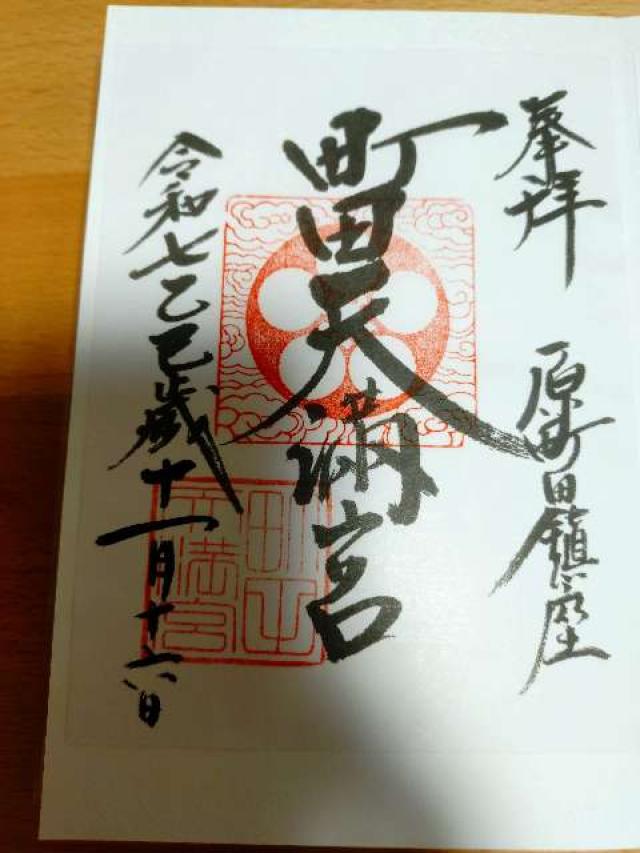 奉拝
原町田鎮座
町田天満宮
町田天満宮
令和七乙巳歳十一月十六日